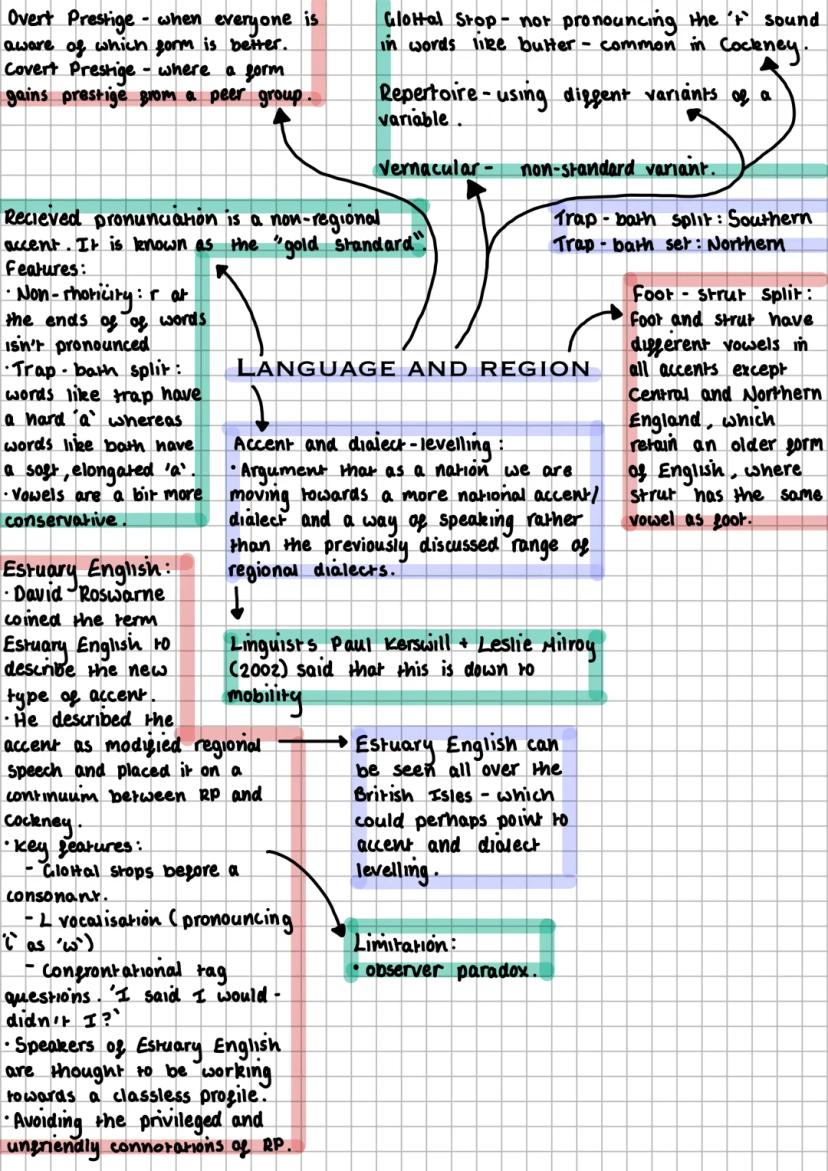 Overt Prestige - when everyone is
aware of which form is better.
Covert Prestige - where a form
gains prestige from a peer group.
Glottal Stop - not pronouncing the 't' sound
in words like butter - common in Cockney.
Repertoire - using diffent variants of a
variable.
Vernacular - non-standard variant.
Recieved pronunciation is a non-regional
accent. It is known as the "gold standard".
Features:
· Non-rhoticity: r at
the ends of of words
isn't pronounced
· Trap-bath split:
words like trap have
a hard 'a' whereas
words like bath have
a soft, elongated 'a'.
· Vowels are a bit more
conservative.
Trap-bath split: Southern
Trap-bath set: Northern
Foot - strut split:
Foot and strut have
different vowels in
all accents except
Central and Northern
England, which
retain an older form
of English, where
strut has the same
vowel as foot.
LANGUAGE AND REGION
Accent and dialect-levelling:
· Argument that as a nation we are
moving towards a more national accent/
dialect and a way of speaking rather
than the previously discussed range of
regional dialects.
Linguists Paul Kerswill + Leslie Milroy
(2002) said that this is down to
mobility
Estuary English:
· David Roswarne
coined the term
Estuary English to
describe the new
type of accent.
· He described the
accent as modified regional
speech and placed it on a
continuum between RP and
Cockney.
· Key features:
- Glottal stops before a
consonant.
- L vocalisation (pronouncing
'l' as 'w')
- Confrontational tag
questions. 'I said I would -
didn't I?'
· Speakers of Estuary English
are thought to be working
towards a classless profile.
· Avoiding the privileged and
unfriendly connotations of RP.
Estuary English can
be seen all over the
British Isles - which
could perhaps point to
accent and dialect
levelling.
Limitation:
· observer paradox.